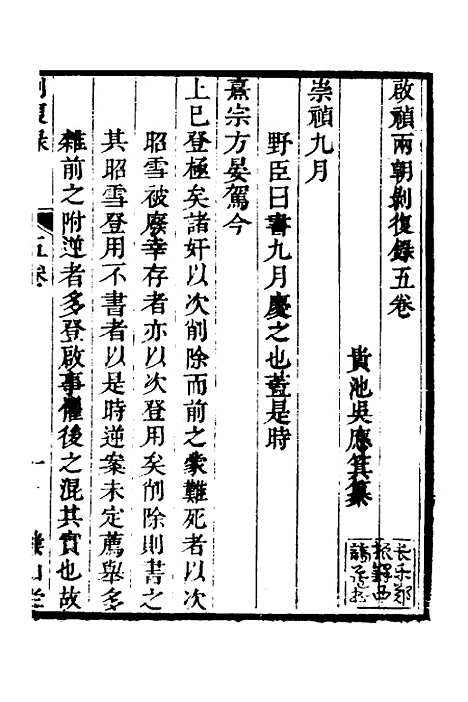 啟禎兩朝剝復錄五卷
貴池吳應箕纂
崇禎九月
野臣曰書九月慶之也蓋是時
熹宗方晏駕今
上已登極矣諸奸以次削除而前之蒙難死者以次
昭雪被廢幸存者亦以次登用矣削除則書之
其昭雪登用不書者以是時逆案未定薦舉多
雜前之附逆者多登啟事懼後之混其實也故
剝復錄
五卷
一
長樂鄭
振鐸西
諦藏書